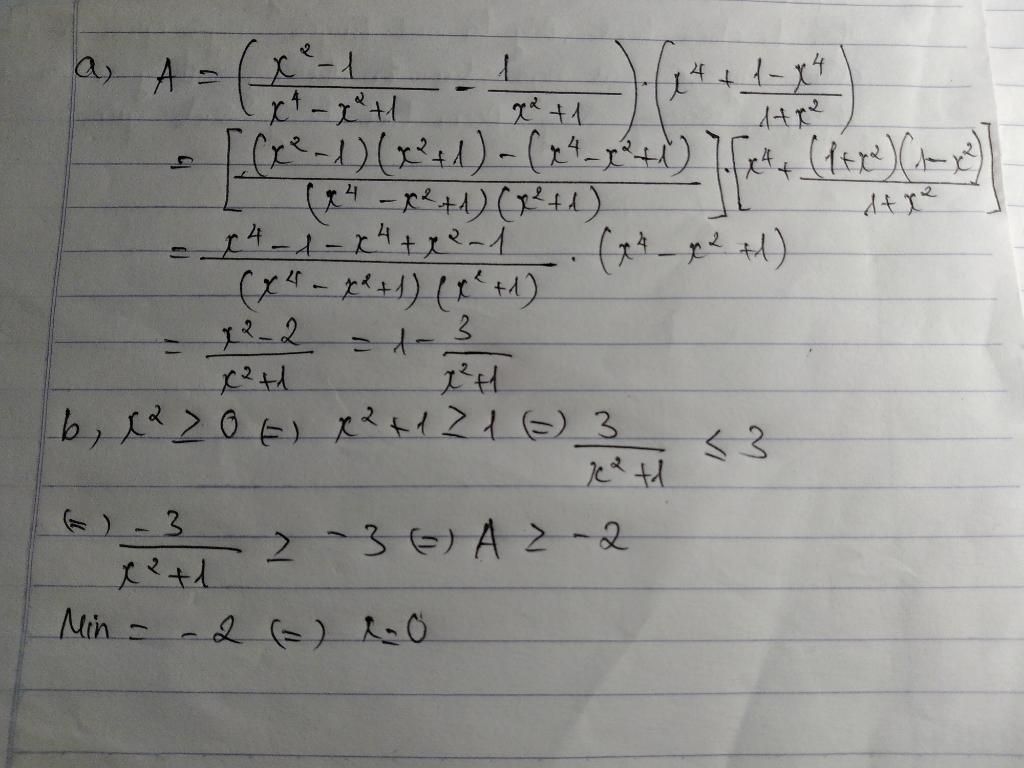 a, A = ( (x² - 1)/(x⁴ - x² + 1) - 1/(x² + 1) ) . ( x⁴ + (1 - x⁴)/(1 + x²) )
= [ ((x² - 1)(x² + 1) - (x⁴ - x² + 1))/((x⁴ - x² + 1)(x² + 1)) ] . [ x⁴ + ((1 + x²)(1 - x²))/(1 + x²) ]
= (x⁴ - 1 - x⁴ + x² - 1)/((x⁴ - x² + 1)(x² + 1)) . (x⁴ - x² + 1)
= (x² - 2)/(x² + 1) = 1 - 3/(x² + 1)
b, x² ≥ 0 (=) x² + 1 ≥ 1 (=) 3/(x² + 1) ≤ 3
(=) -3/(x² + 1) ≥ -3 (=) A ≥ -2
Min = -2 (=) x = 0